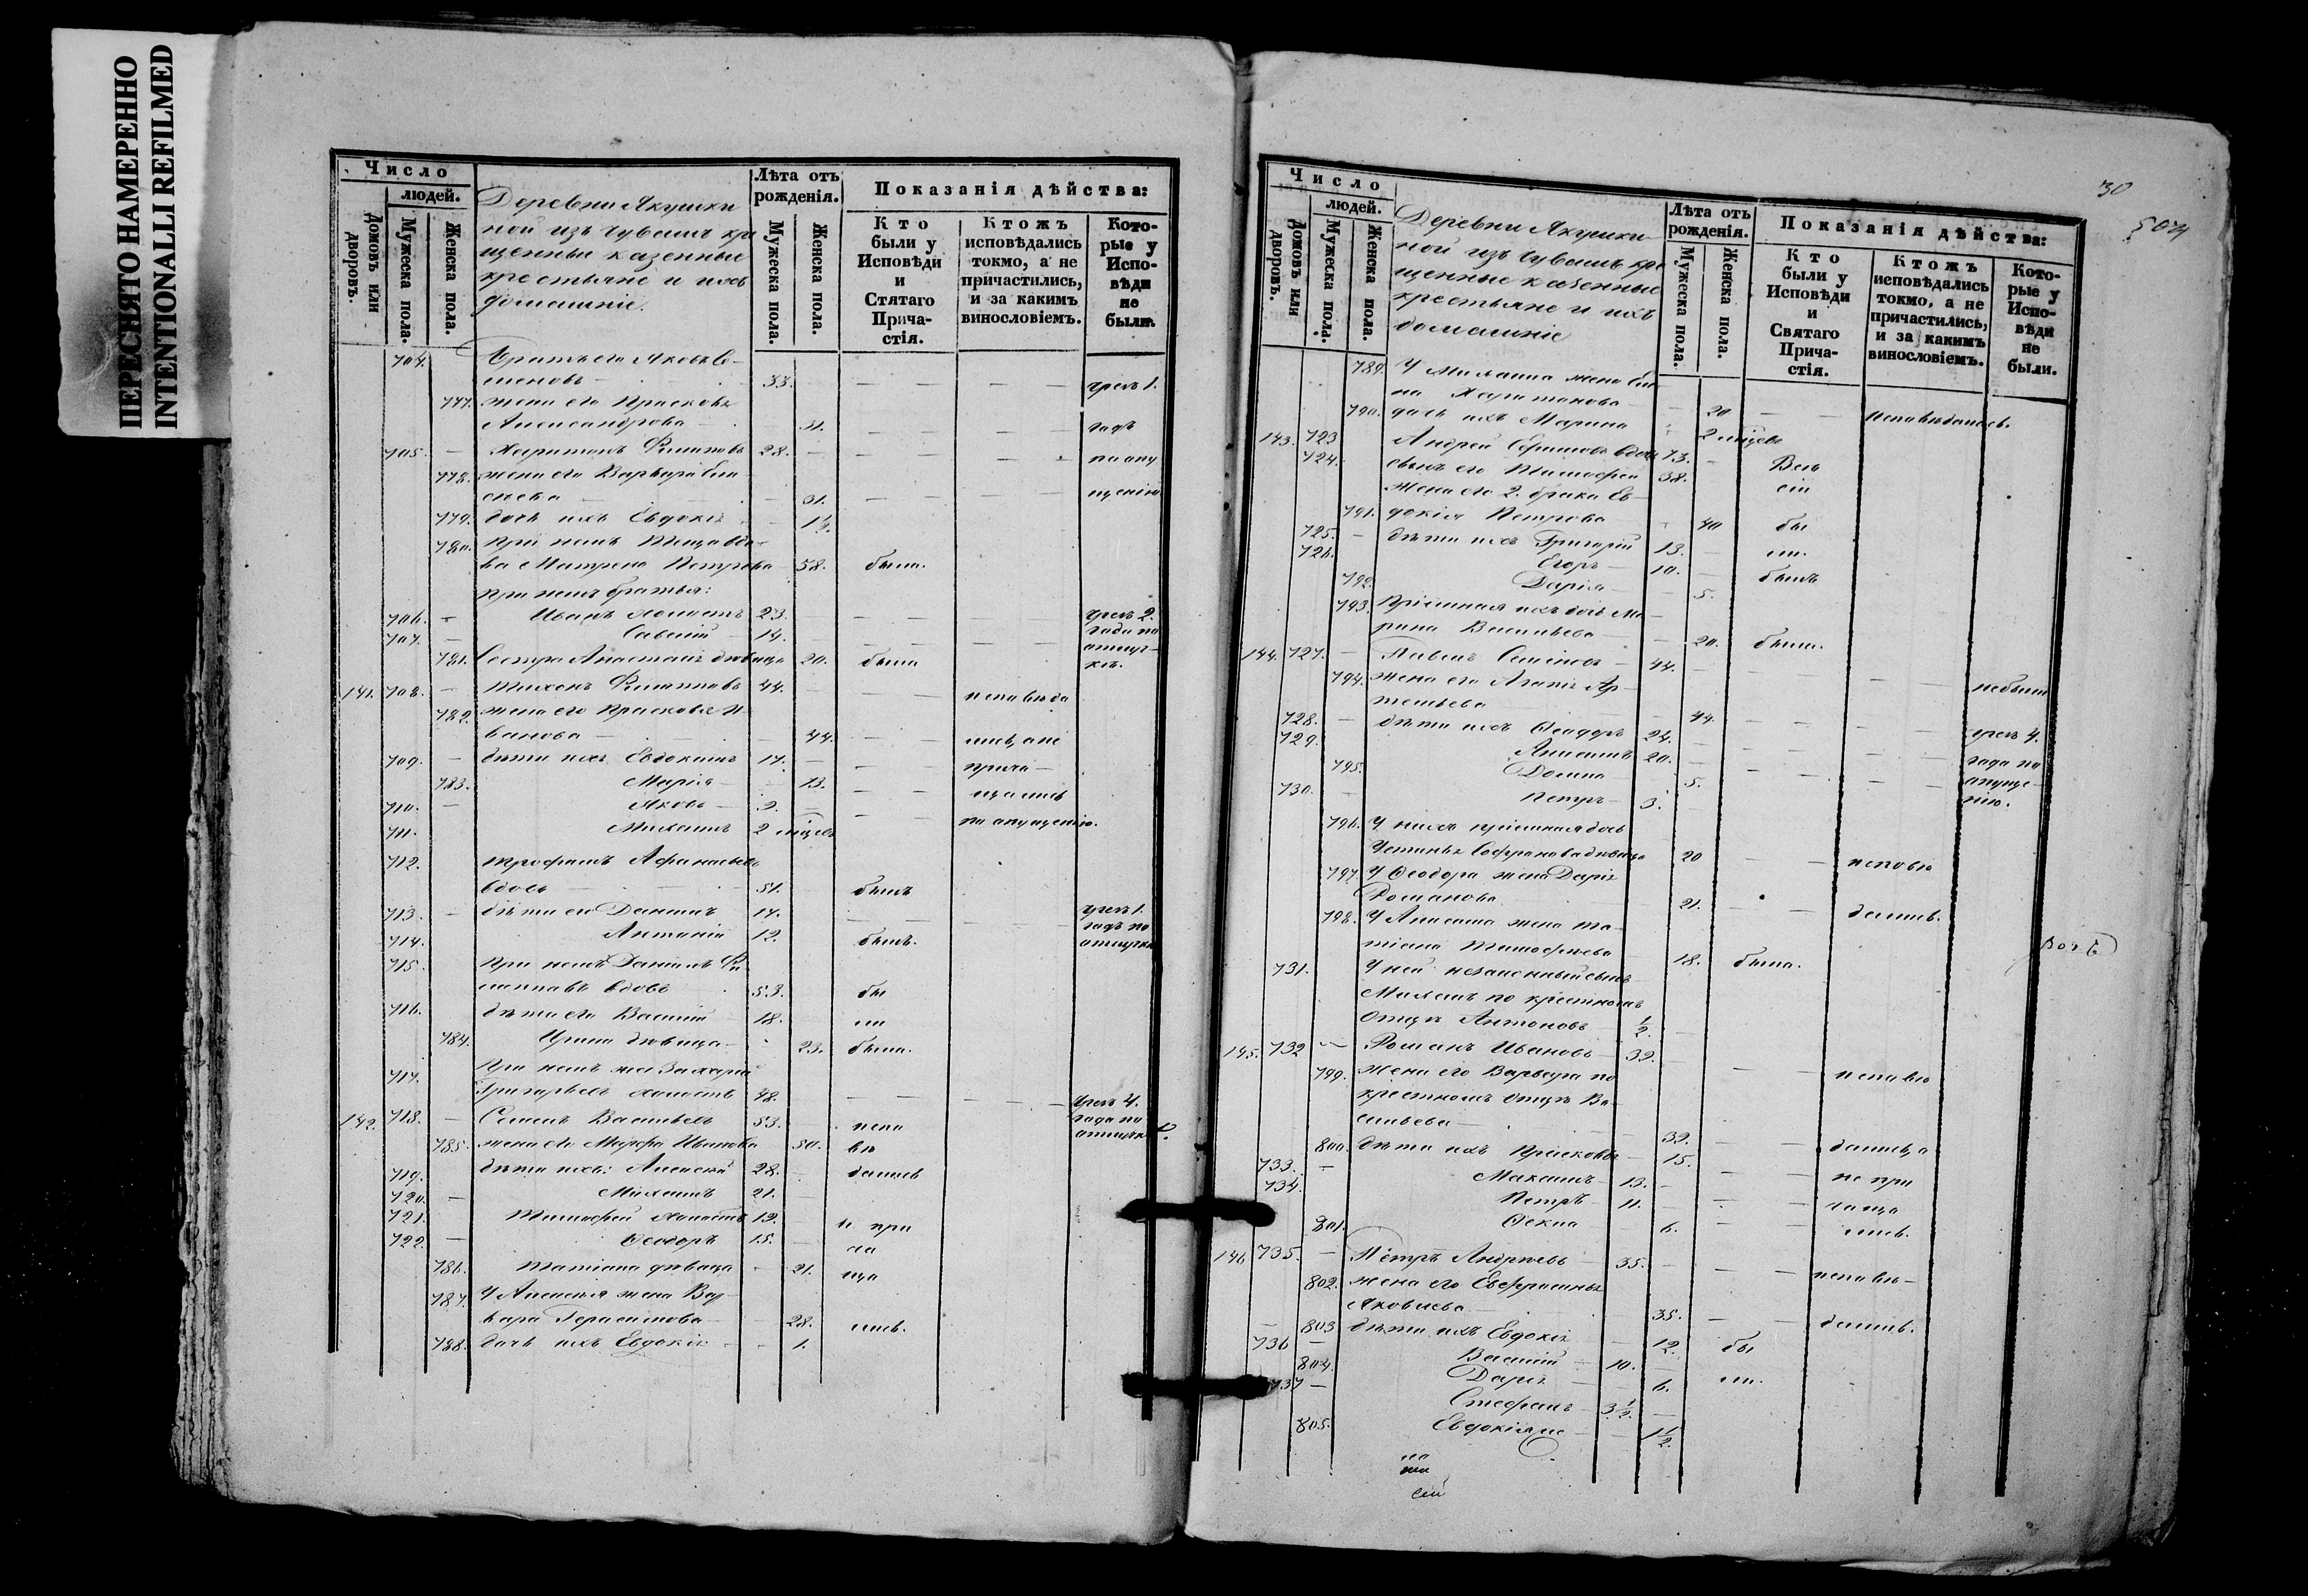 ПЕРЕСНЯТО НАМЕРЕННО
INTENTIONALLI REFILMED
Число
людей.
Домовъ или дворовъ.
Мужеска пола.
Женска пола.
Деревни Якушки
ной изъ чувашъ кре
щенные казенные
крестьяне и ихъ
домашніе.
Лѣта отъ
рожденія.
Мужеска пола.
Женска пола.
Показанія дѣйства:
Кто
были у
Исповѣди
и
Стятаго
Прича-
стія.
Ктожъ
исповѣдались
токмо, а не
причастились,
и за какимъ
винословіемъ.
Кото-
рые у
Испо-
вѣди
не
были.
704. Братъ его Яковъ Се-
меновъ 33. чрезъ 1.
777. жена его Прасковья
Александрова 31. годъ
705. Харитонъ Филиповъ 28. по опу
778. жена его Варвара
31. щенію
779. дочь ихъ Евдокія 1½.
780. при немъ теща вдо-
ва Матрена Петрова 58. была.
при немъ братья:
706. Иванъ холостъ 23. чрезъ 2.
707. Савелій 14. года по
781. Сестра Анастасія дѣвица 20. была
141. 708. Тихонъ Филипповъ 44. исповѣда
782. жена его Прасковья И-
ванова 44. лись, а не
709. дѣти ихъ Евдокимъ 17. прича-
783. Марія 13. щались
710. Яковъ 9.
711. Михаилъ 2 мѣсяц. по опущенію.
712. Трофимъ Афанасьевъ
вдовъ 51. былъ
713. дѣти его Даніилъ 17. чрезъ 1.
714. Антоній 12. былъ. годъ по
715. При немъ Даніилъ Фи
липповъ вдовъ 53. бы
716. дѣти его Василій 18. ли
784. Ирина дѣвица 23. была.
717. При немъ же Захарій
Григорьевъ холостъ 48. чрезъ 4.
142. 718. Семенъ Васильевъ 53. испо года по
785. жена его Марфа Иванова 50. вѣ
719. дѣти ихъ: Алексей 28. дались
720. Михаилъ 21.
721. Тимофей холостъ 19. и при
722. Ѳеодоръ 15. ча
786. Татіана дѣвица 21. ща
787. У Алексѣя жена Вар-
вара Герасимова 28. лись.
788. дочь ихъ Евдокія 1.
30
Число
людей.
Домовъ или дворовъ.
Мужеска пола.
Женска пола.
Деревни Якушки
ной изъ чувашъ кре
щенные казенные
крестьяне и ихъ
домашніе
Лѣта отъ
рожденія.
Мужеска пола.
Женска пола.
Показанія дѣйства:
Кто
были у
Исповѣди
и
Святаго
Прича-
стія.
Ктожъ
исповѣдались
токмо, а не
причастились,
и за какимъ
винословіемъ.
Кото-
рые у
Испо-
вѣди
не
были.
789. У Михаила жена
на Харитонова 20 исповѣдалась.
790. дочь ихъ Марина 2 мѣсяц.
143. 723 Андрей Ефимовъ вдовъ 73. Всѣ
724. сынъ его Тимофей 38. сіи
жена его 2. брака Ев-
791. докія Петрова 40 бы
725. дѣти ихъ Григорій 13. ли.
726. Егоръ 10. былъ
792. Дарія 5.
793. Пріемная ихъ дочь Ма-
рина Васильева 20. была.
144. 727. Павелъ Семеновъ 44.
794. жена его Агапія Ар-
темьева 44. небыли
728. дѣти ихъ Ѳеодоръ 24. чрезъ 4.
729. Алексѣй 20. года по
795. Домна 5. опуще-
730. Петръ 3. нію.
796. У нихъ пріемная дочь
Устинья Софронова дѣвица 20 исповѣ
797. У Ѳеодора жена Дарія
Романова 21. далась.
798. У Алексѣя жена Та-
тіана Тимофеева 18. была.
731. У ней незаконный сынъ
Михаилъ по крестному
отцу Антоновъ ½.
145. 732 Романъ Ивановъ 39.
799. жена его Варвара по исповѣ
крестному отцу Ва-
сильева 39. дались, а
800. дѣти ихъ Прасковья 15.
733. Максимъ 13. не при
734. Петръ 11. чаща
801. Ѳекла 6. лись.
146 735. Петръ Андреевъ 35. исповѣ-
802. жена его Евфросинья
Яковлева 35. дались.
803 дѣти ихъ Евдокія 12. бы
736 Василій 10.
804. Дарія 6. ли.
737 Стефанъ 3½.
805. Евдокія 1½.